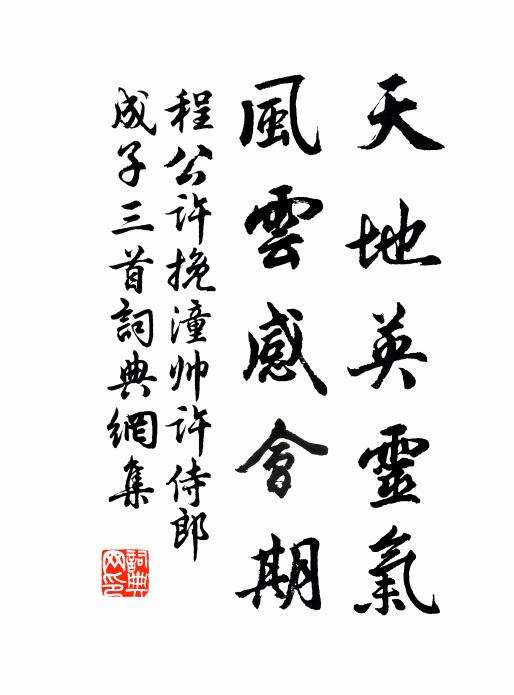 天地英靈氣
風雲感會期
程公许挽潼帅许侍郎
成子三首詞典網集
詞典网印